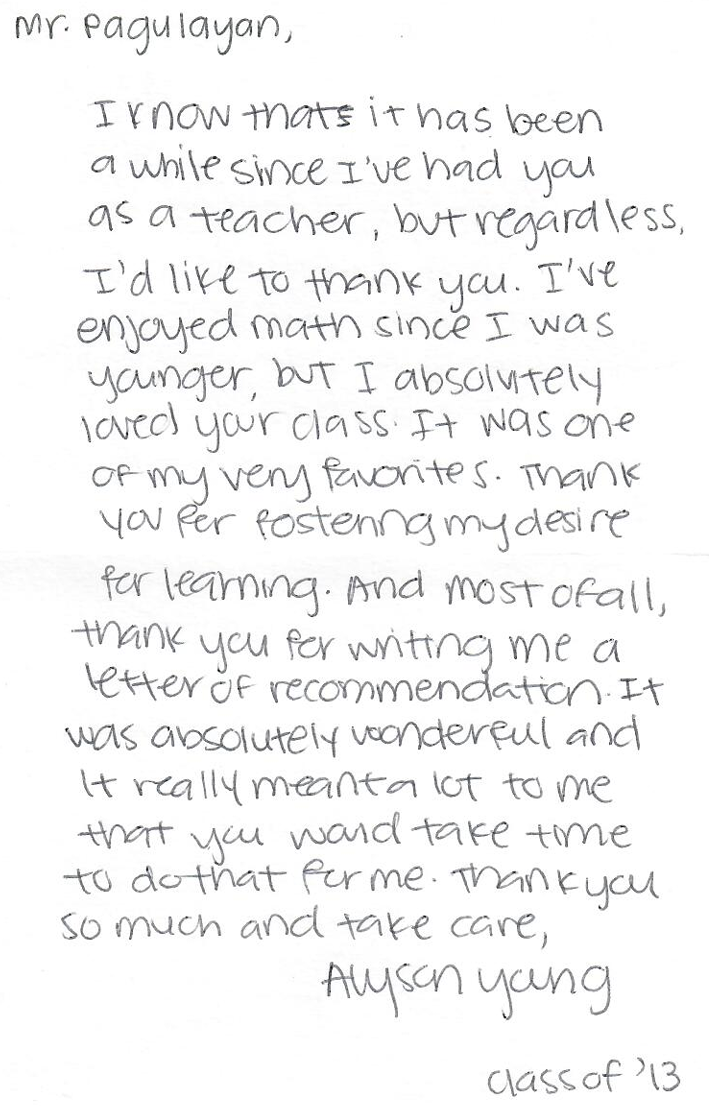 Mr. Pagulayan,
I know that it has been
a while since I've had you
as a teacher, but regardless,
I'd like to thank you. I've
enjoyed math since I was
younger, but I absolutely
loved your class. It was one
of my very favorites. Thank
you for fostering my desire
for learning. And most of all,
thank you for writing me a
letter of recommendation. It
was absolutely wonderful and
it really meant a lot to me
that you would take time
to do that for me. Thank you
so much and take care,
Alyson Young
class of '13